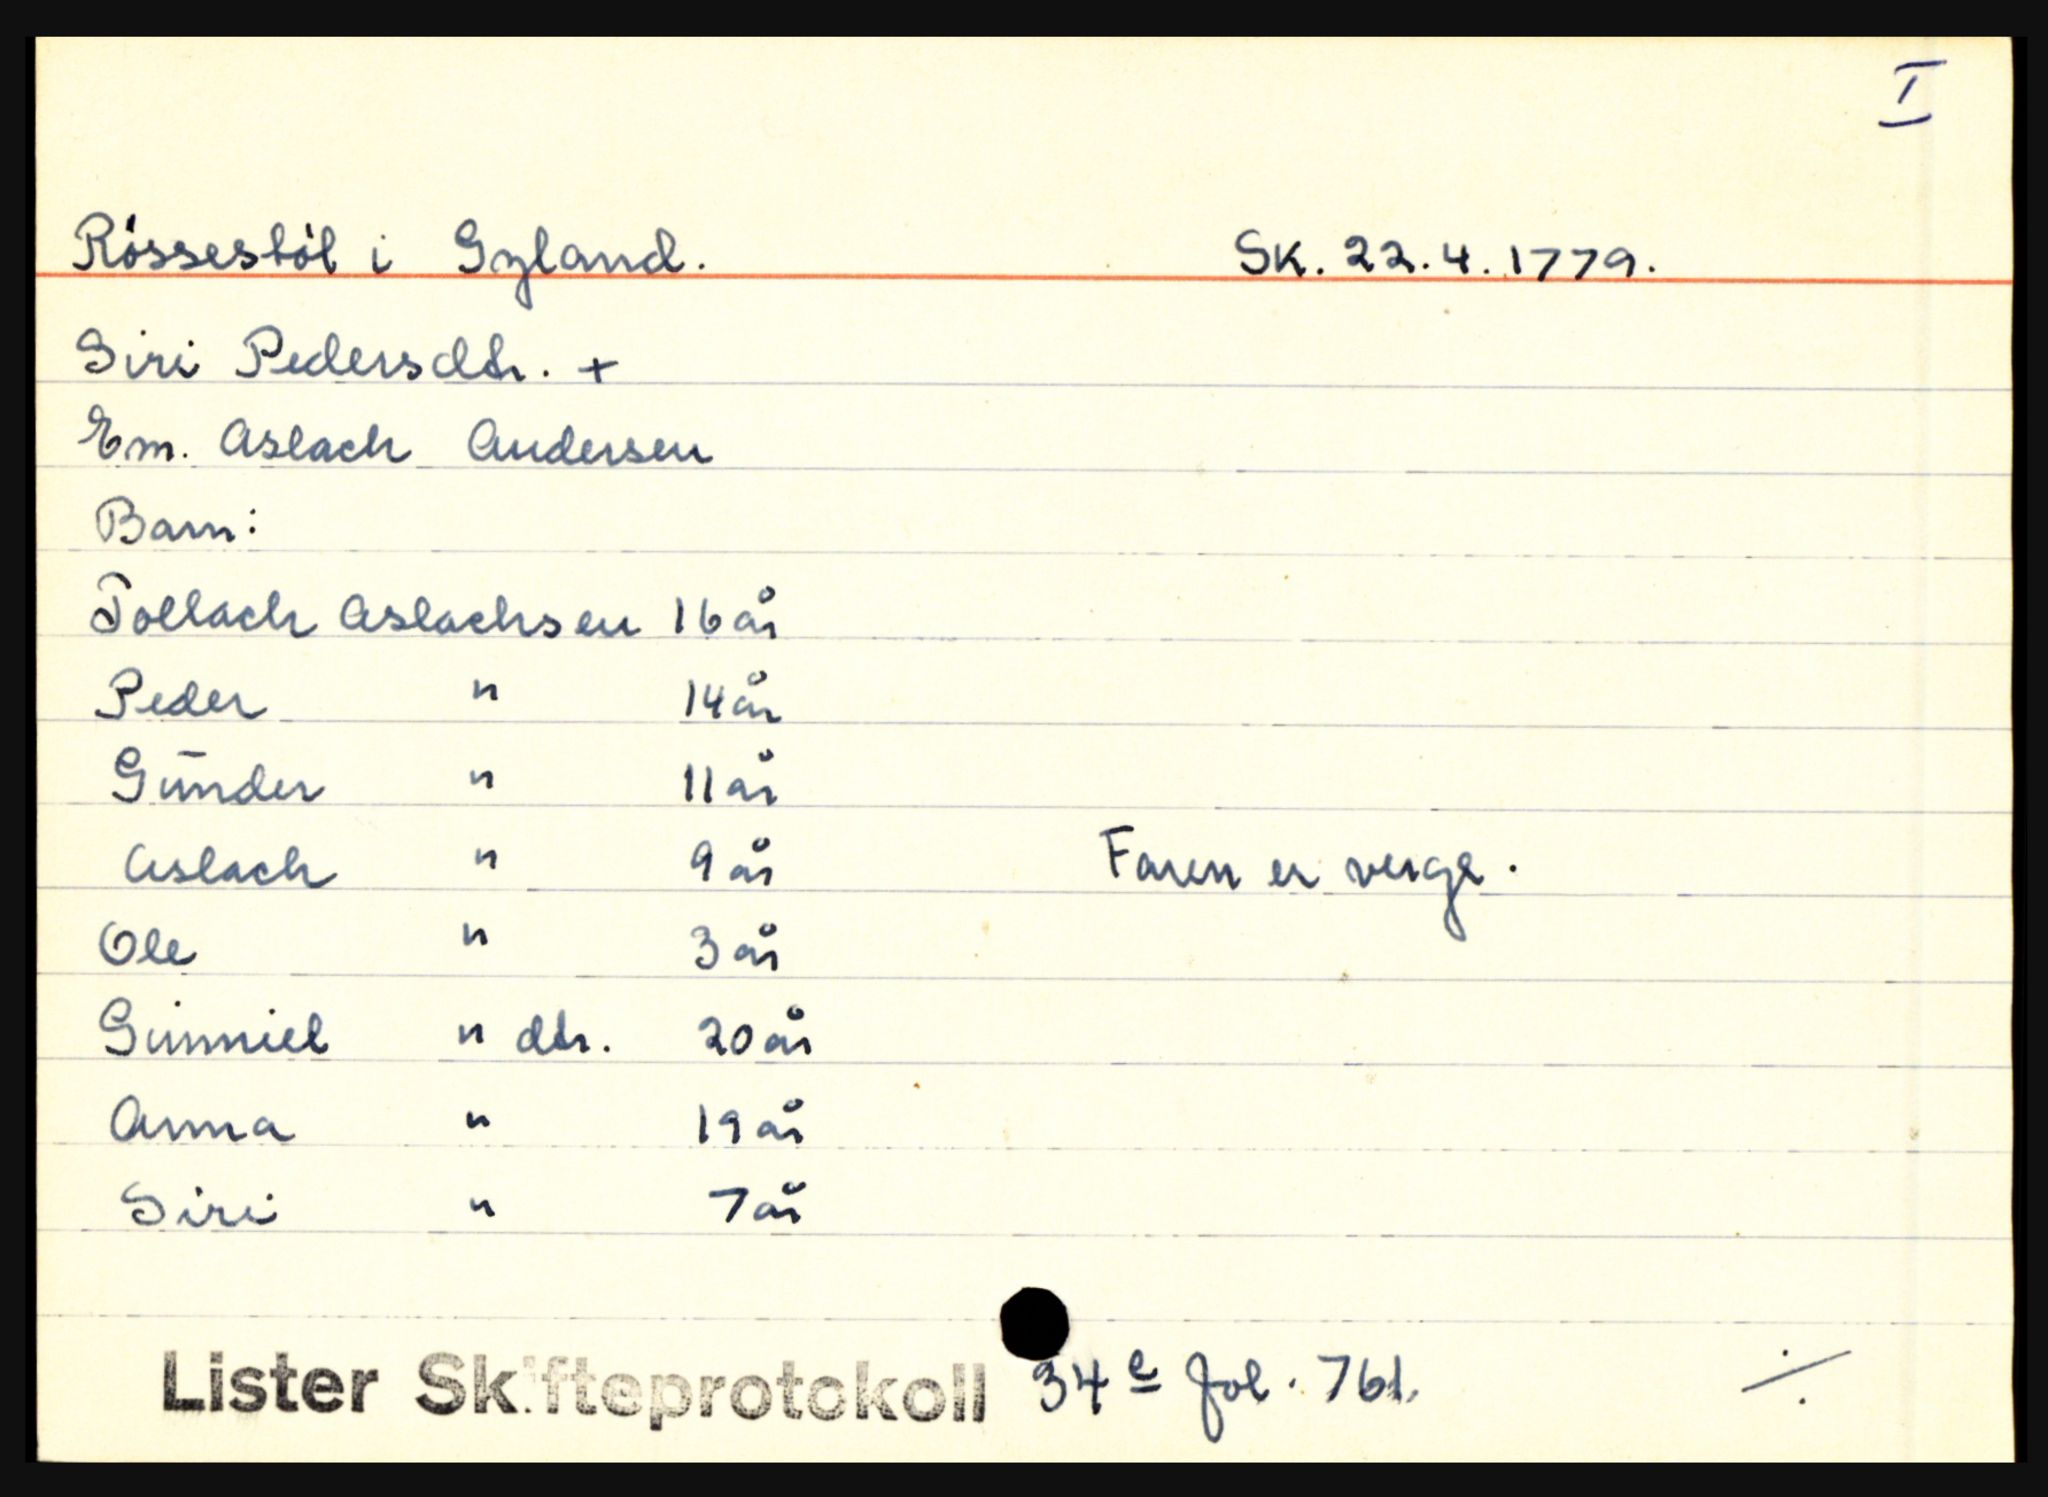 I
Røssestøl i Gyland. Sk. 22.4.1779.
Siri Pedersdtr. +
Em. Aslach Andersen
Barn:
Tollach Aslachsen 16 år
Peder " 14 år
Gunder " 11 år
Aslach " 9 år Faren er verge.
Ole " 3 år
Gunniel " dtr. 20 år
Anna " 19 år
Siri " 7 år
Lister Skifteprotokoll 34e fol. 761.